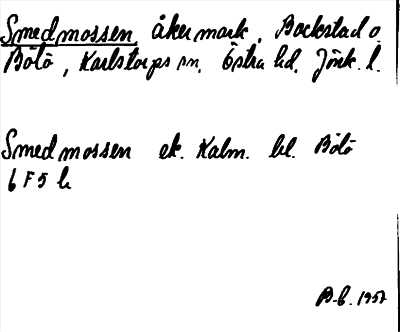 Smedmossen, åkermark, Bockstad o.
Bölö, Karlstorps sn. Östra hd. Jönk. l.
Smedmossen ek. Kalm. bl. Bölö
6 F 5 b
B-b. 1957